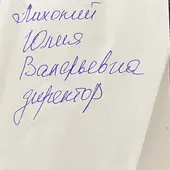 Лихопий
Юлия
Валерьевна
директор